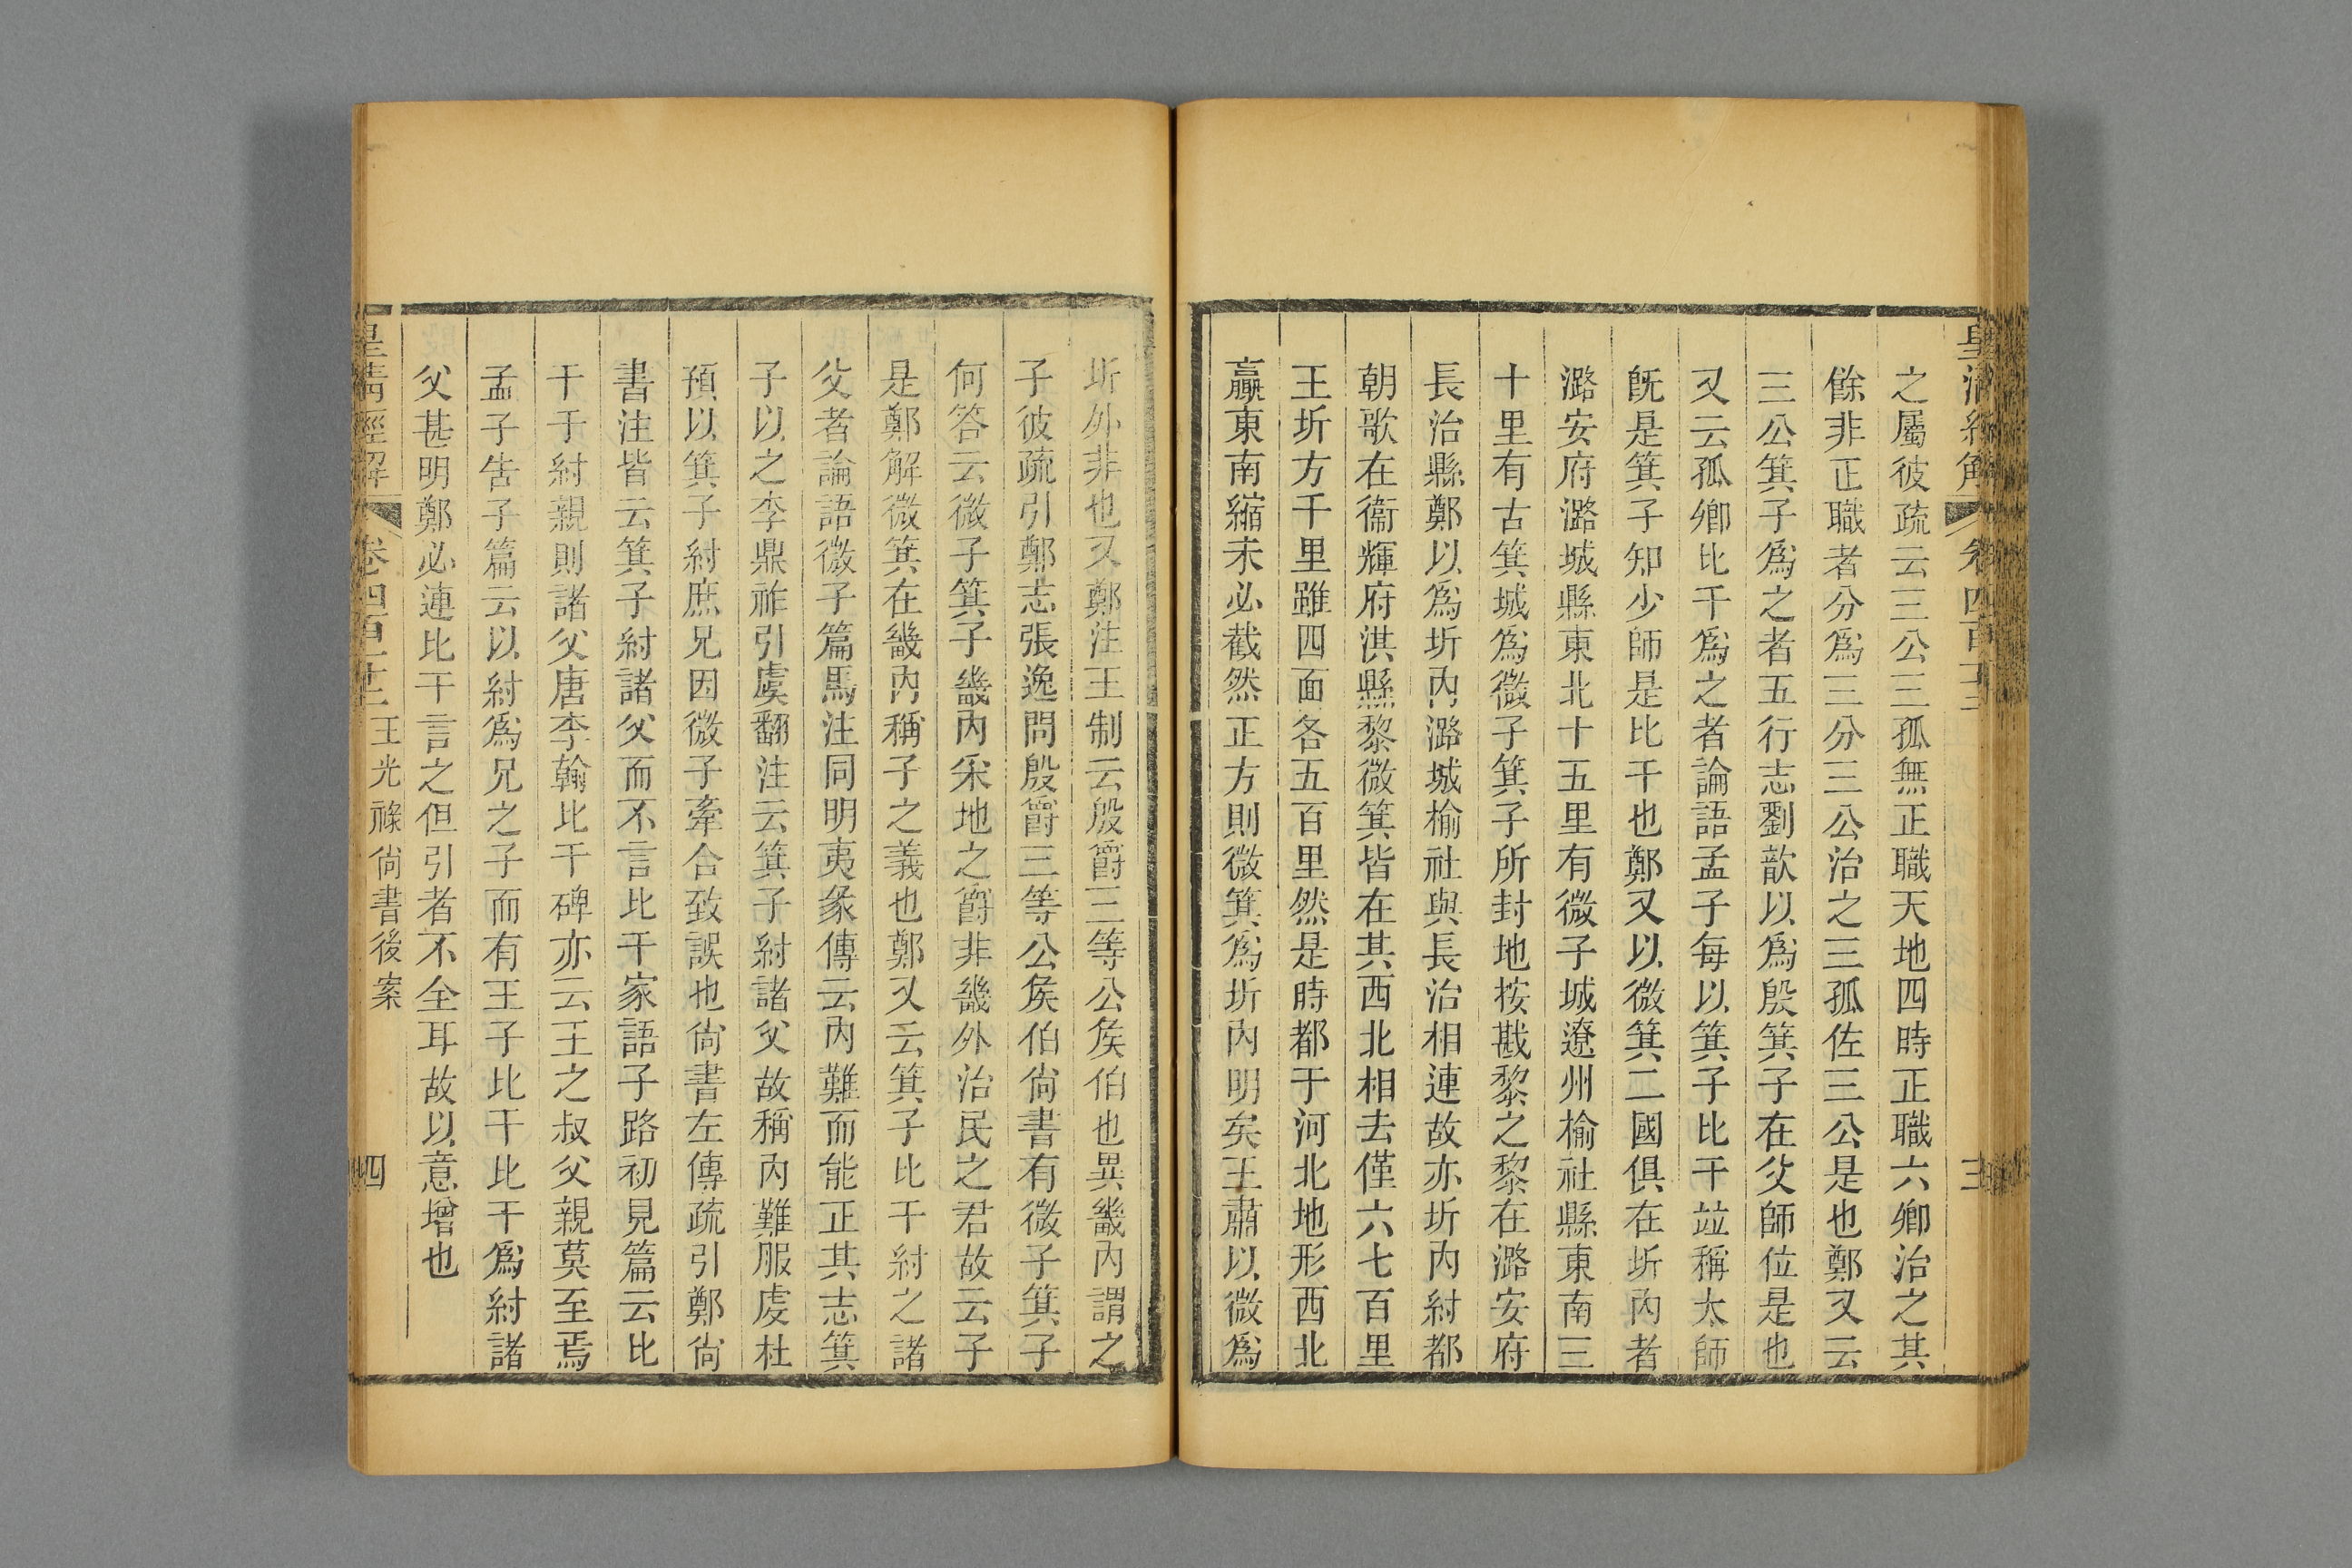 皇清經解 卷四百十三 三
之屬彼疏云三公三孤無正職天地四時正職六卿治之其
餘非正職者分爲三分三公治之三孤佐三公是也鄭又云
三公箕子爲之者五行志劉歆以爲殷箕子在父師位是也
又云孤卿比干爲之者論語孟子每以箕子比干竝稱太師
旣是箕子知少師是比干也鄭又以微箕二國俱在圻內者
潞安府潞城縣東北十五里有微子城遼州榆社縣東南三
十里有古箕城爲微子箕子所封地按戡黎之黎在潞安府
長治縣鄭以爲圻內潞城榆社與長治相連故亦圻內紂都
朝歌在衞輝府淇縣黎微箕皆在其西北相去僅六七百里
王圻方千里雖四面各五百里然是時都于河北地形西北
贏東南縮未必截然正方則微箕爲圻內明矣王肅以微爲
圻外非也又鄭注王制云殷爵三等公矦伯也異畿內謂之
子彼疏引鄭志張逸問殷爵三等公矦伯尙書有微子箕子
何答云微子箕子畿內采地之爵非畿外治民之君故云子
是鄭解微箕在畿內稱子之義也鄭又云箕子比干紂之諸
父者論語微子篇馬注同明夷彖傳云內難而能正其志箕
子以之李鼎祚引虞翻注云箕子紂諸父故稱內難服虔杜
預以箕子紂庶兄因微子牽合致誤也尙書左傳疏引鄭尙
書注皆云箕子紂諸父而不言比干家語子路初見篇云比
干于紂親則諸父唐李翰比干碑亦云王之叔父親莫至焉
孟子告子篇云以紂爲兄之子而有王子比干比干爲紂諸
父甚明鄭必連比干言之但引者不全耳故以意增也
皇清經解 卷四百十三 王光祿尙書後案 四